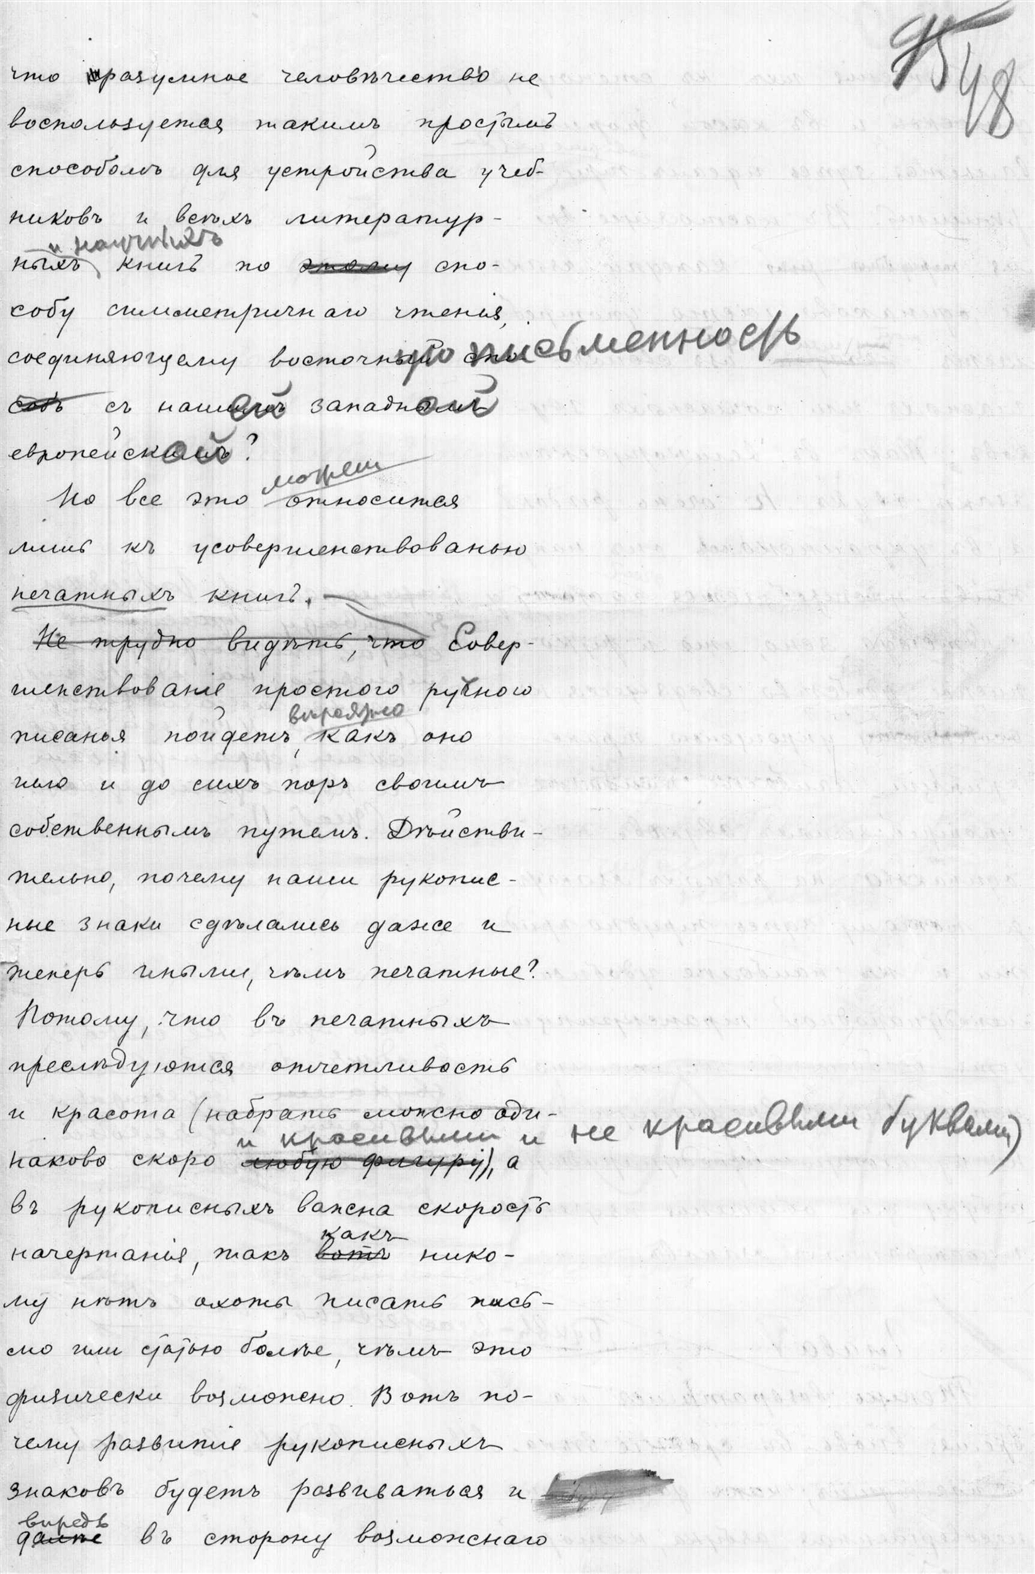 95 48
что разумное человѣчество не
воспользуется такимъ простымъ
способомъ для устройства учеб-
никовъ и всѣхъ литератур-
и научныхъ
ныхъ книгъ по этому спо-
собу симметричнаго чтенія,
соединяющему восточную письменность
собъ съ нашей западной
европейской?
можетъ
Но все это относится
лишь къ усовершенствованью
печатныхъ книгъ.
Не трудно видѣть, что Совер-
шенствованіе простого ручного
вѣроятно
писанья пойдетъ, какъ оно
шло и до сихъ поръ своимъ
собственнымъ путемъ. Дѣйстви-
тельно, почему наши рукопис-
ные знаки сдѣлались даже и
теперь иными, чѣмъ печатные?
Потому, что въ печатныхъ
преслѣдуются отчетливость
и красота (набрать можно оди-
и красивыми и не красивыми буквами)
наково скоро любую фигуру), а
въ рукописныхъ важна скорость
какъ
начертанія, такъ вотъ нико-
му нѣтъ охоты писать пись-
мо или статью болѣе, чѣмъ это
физически возможно. Вотъ по-
чему развитіе рукописныхъ
знаковъ будетъ развиваться и
впредь
далѣе въ сторону возможнаго